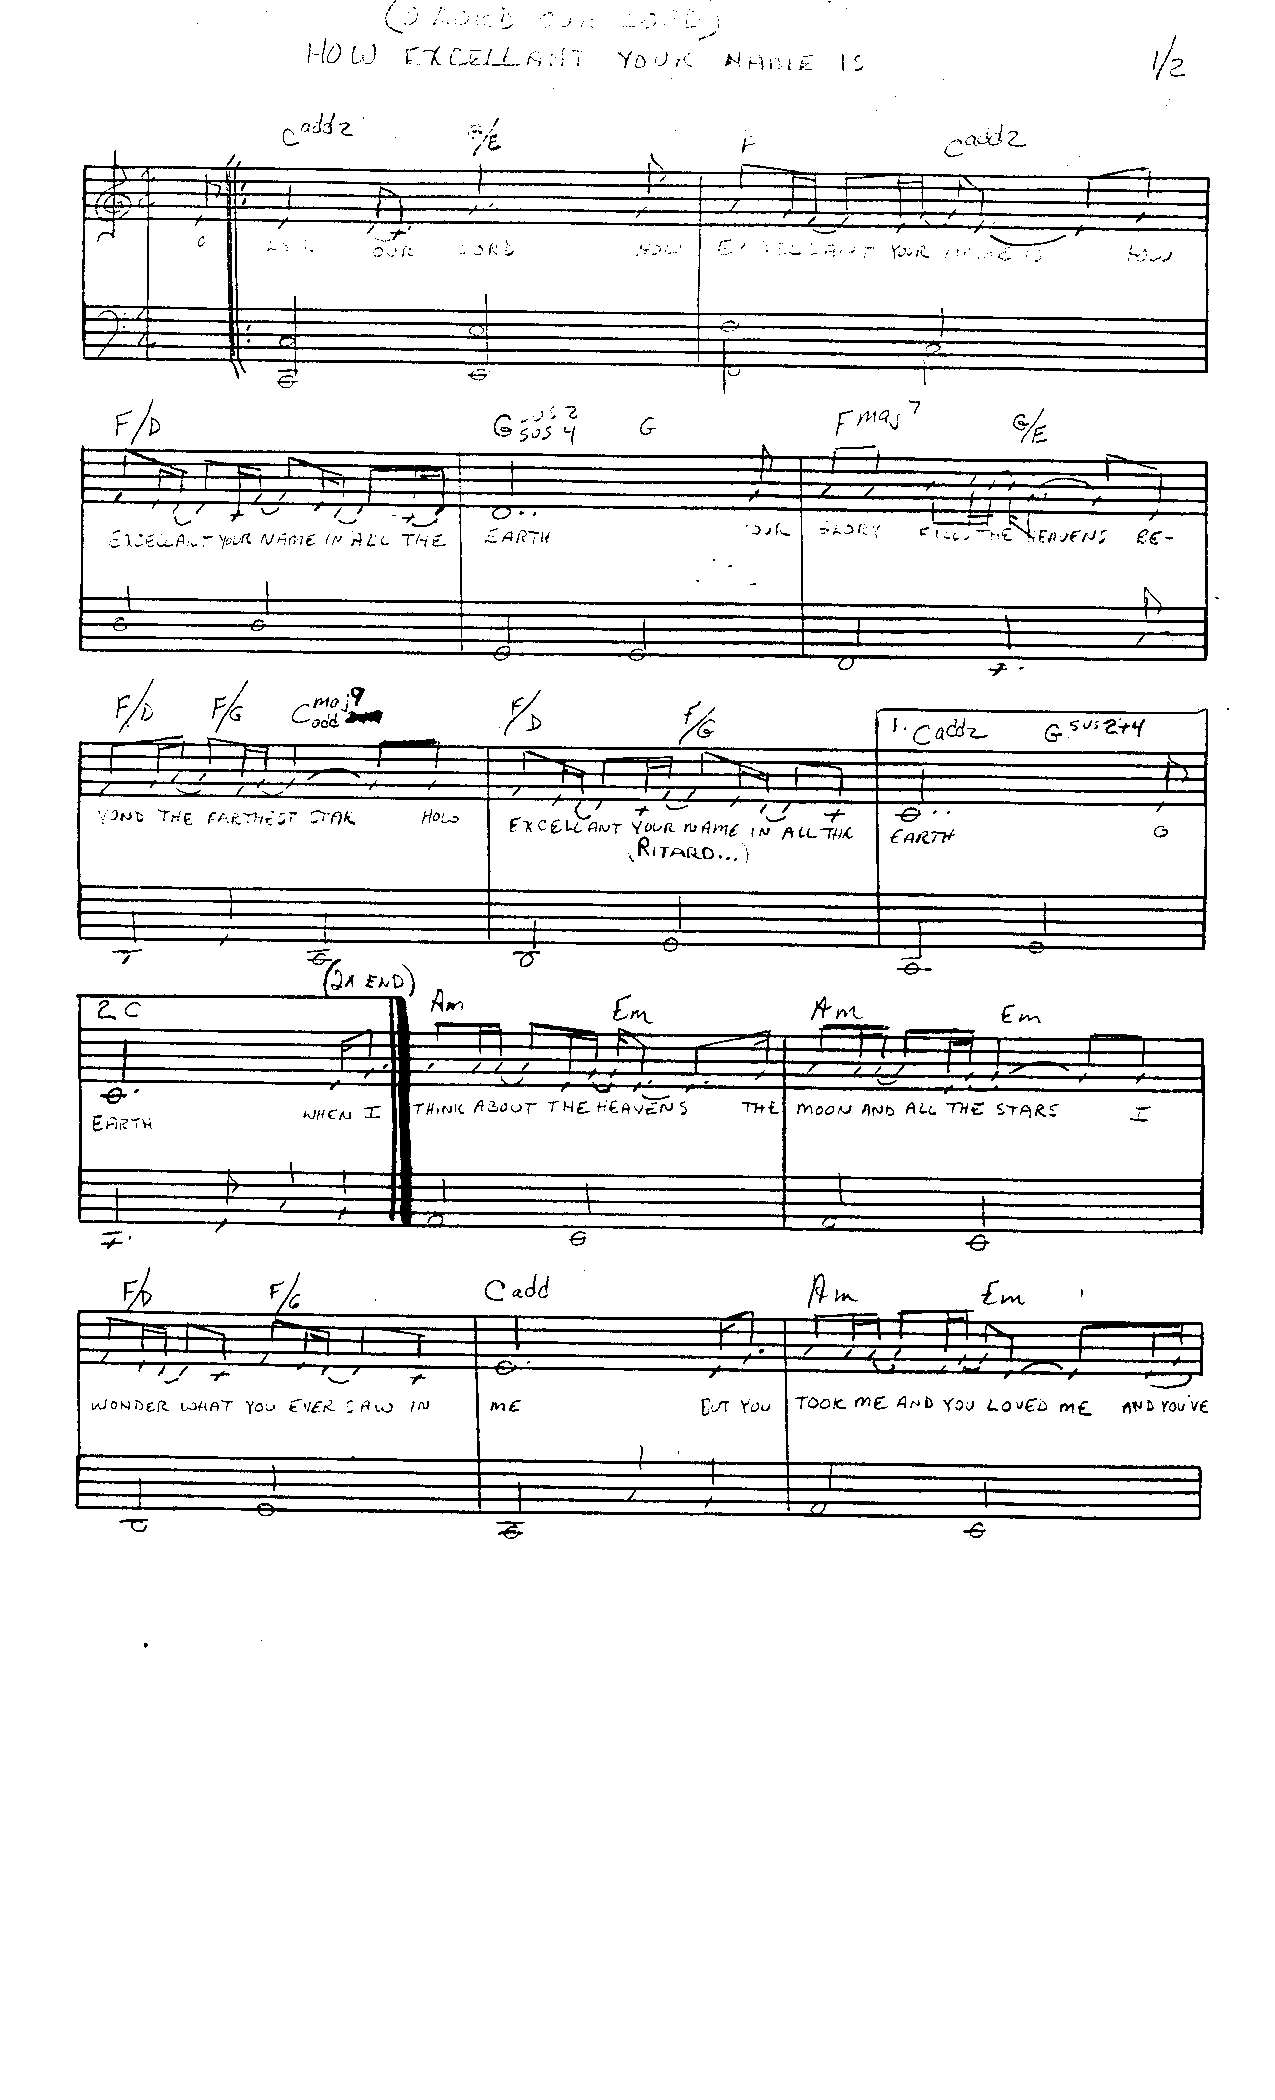 (O LORD OUR LORD)
HOW EXCELLANT YOUR NAME IS 1/2
Cadd2 G/E F Cadd2
O LORD OUR LORD HOW EXCELLANT YOUR NAME IS HOW
F/D Gsus2 sus4 G Fmaj7 G/E
EXCELLANT YOUR NAME IN ALL THE EARTH YOUR GLORY FILLS THE HEAVENS BE-
F/D F/G Cmaj9 add F/D F/G 1. Cadd2 Gsus2+4
YOND THE FARTHEST STAR HOW EXCELLANT YOUR NAME IN ALL THE EARTH O
(RITARD...)
(2X END)
2 C Am Em Am Em
EARTH WHEN I THINK ABOUT THE HEAVENS THE MOON AND ALL THE STARS I
F/D F/G Cadd Am Em
WONDER WHAT YOU EVER SAW IN ME BUT YOU TOOK ME AND YOU LOVED ME AND YOU'VE